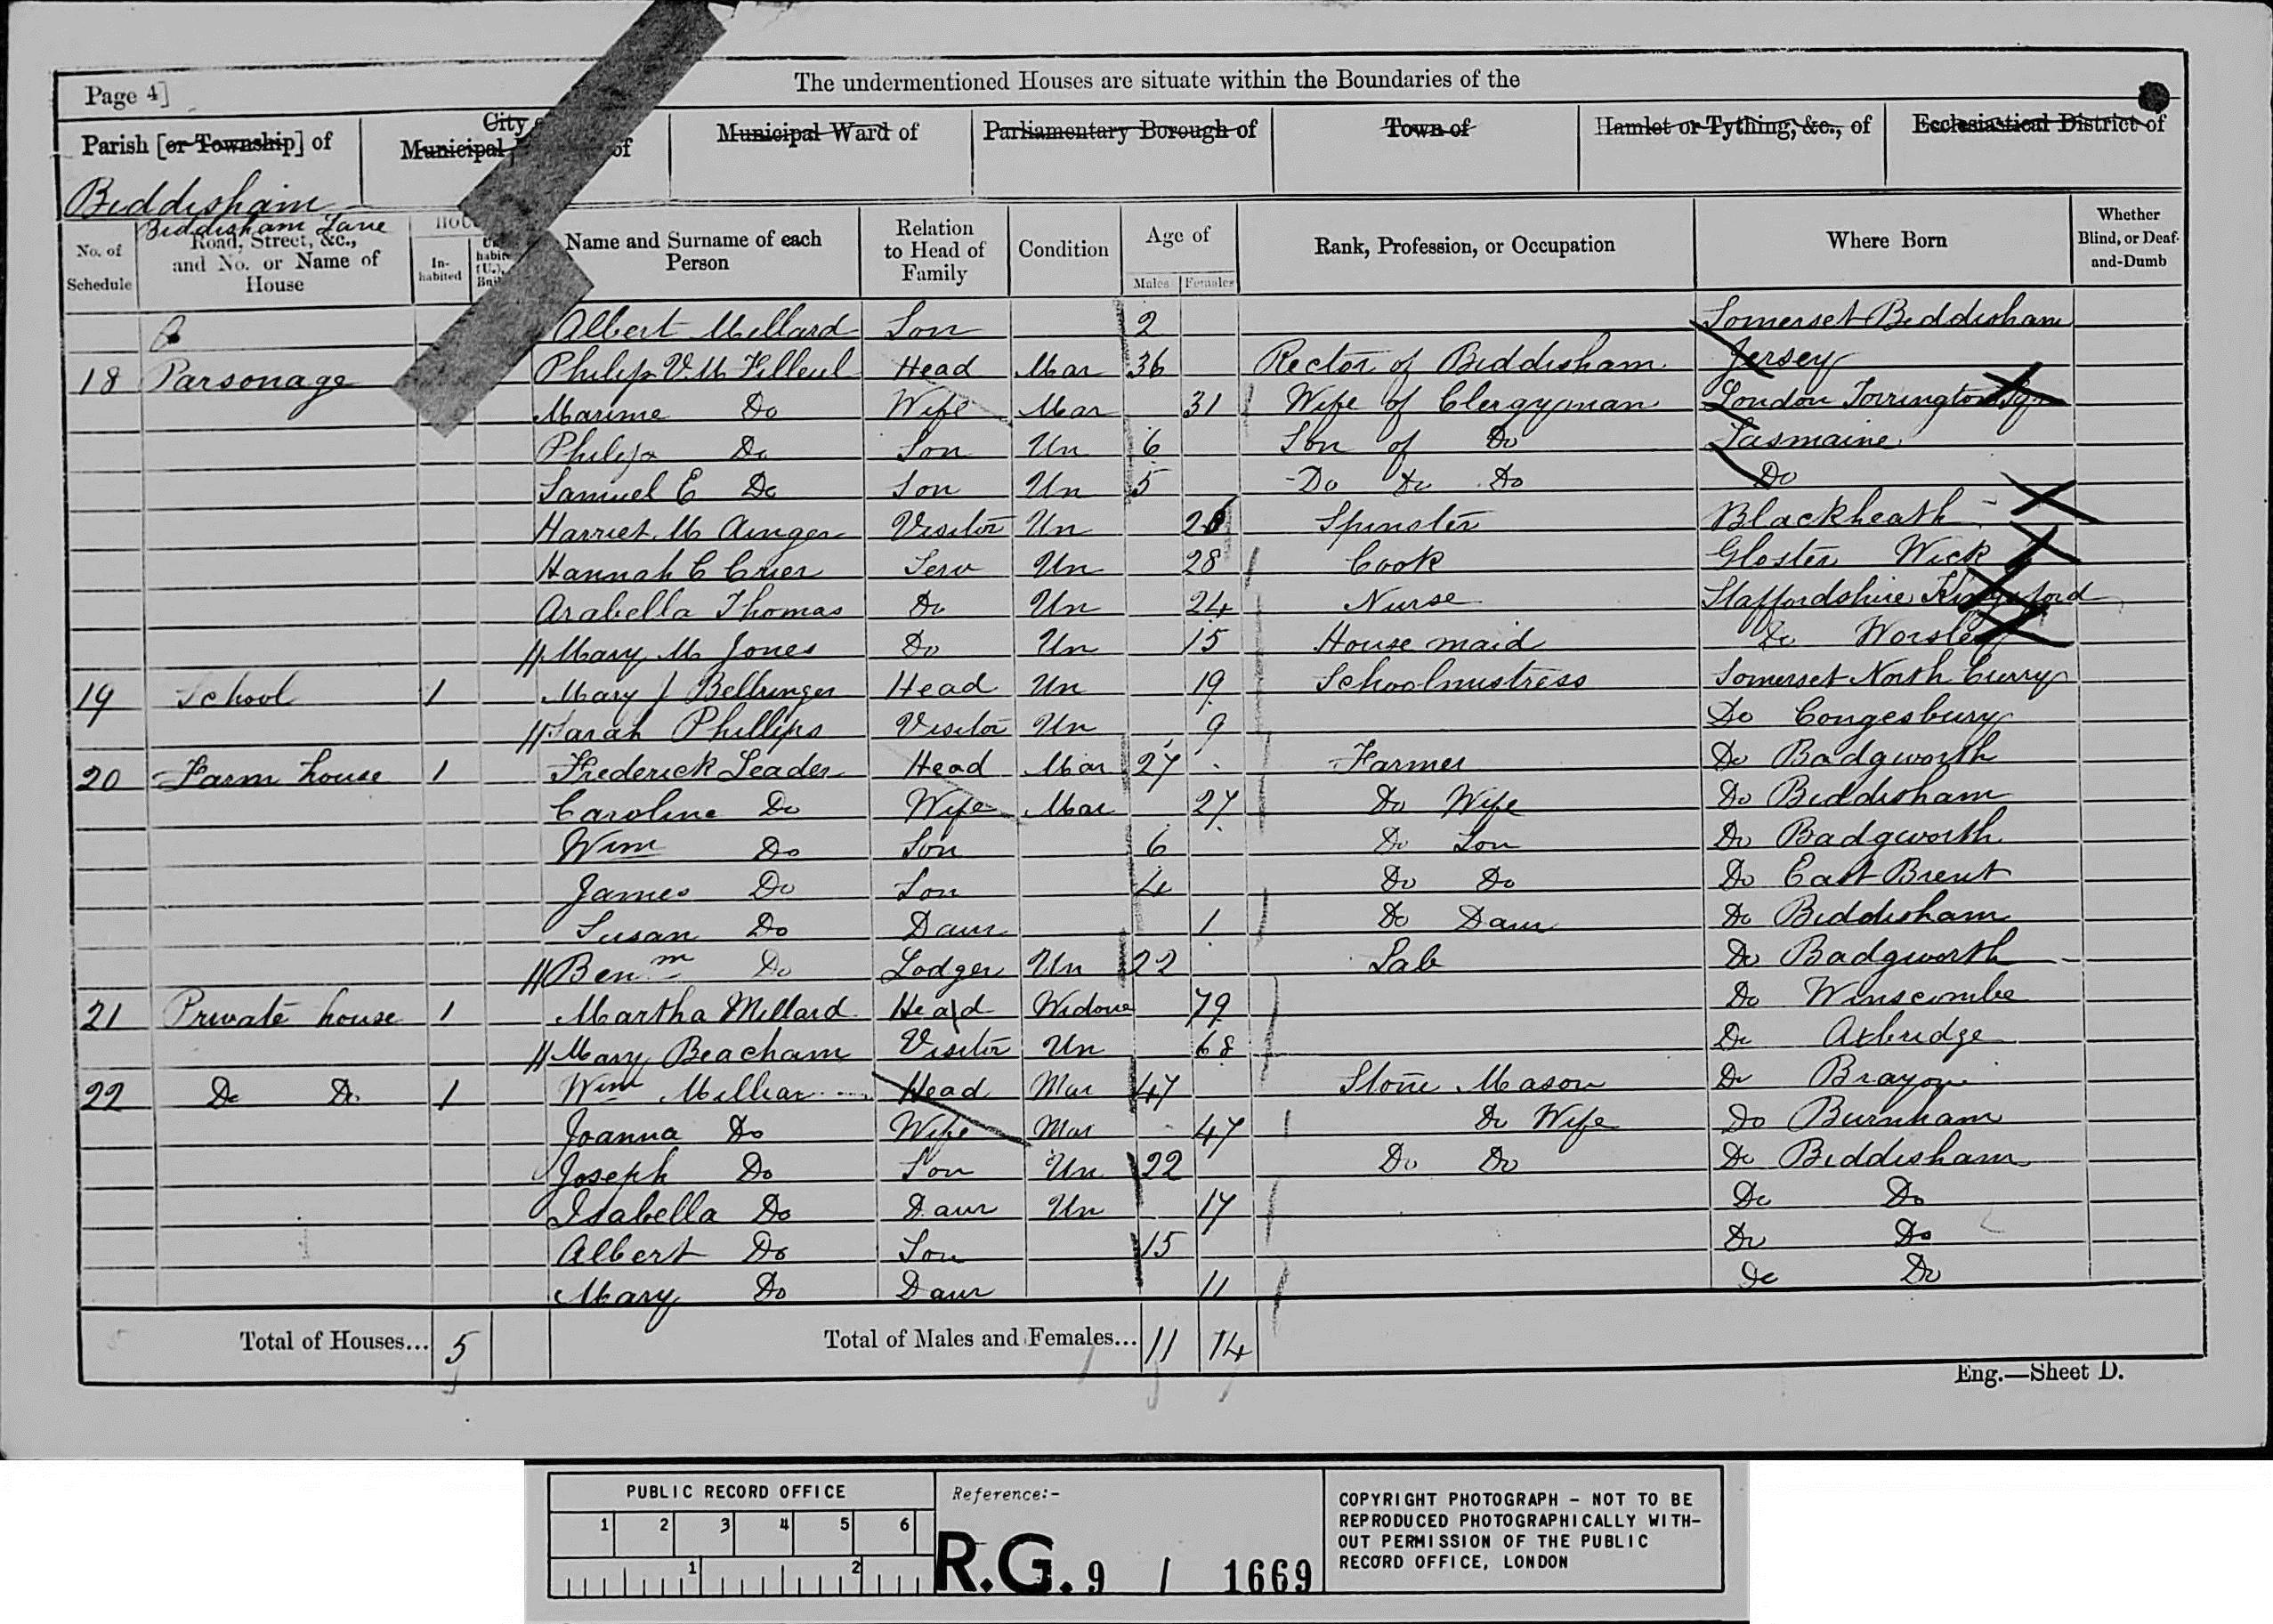 The undermentioned Houses are situate within the Boundaries of the
Page 4]
Parish [or Township] of
City
Municipal of
Municipal Ward of
Parliamentary Borough of
Town of
Hamlet or Tything, &c., of
Ecclesiastical District of
Biddisham
Biddisham Lane
No. of Schedule
Road, Street, &c., and No. or Name of House
HOU
In-habited
Name and Surname of each Person
Relation to Head of Family
Condition
Age of
Males Females
Rank, Profession, or Occupation
Where Born
Whether Blind, or Deaf-and-Dumb
Albert Millard Son 2 Somerset Biddisham
18 Parsonage Philip V. M Filleul Head Mar 36 Rector of Biddisham Jersey
Do Wife Mar 31 Wife of Clergyman London Torrington Sqr
Philip Do Son Un 6 Son of Do Tasmaine
Samuel E Do Son Un 5 Do Do Do Do
Harriet M Ainger Visitor Un Spinster Blackheath
Hannah C Crier Serv Un 28 Cook Gloster Wick
Arabella Thomas Do Un 24 Nurse Staffordshire
Mary M Jones Do Un 15 House maid Do Worsley
19 School 1 Mary J Bellringer Head Un 19 Schoolmistress Somerset North Curry
Sarah Phillips Visitor Un 9 Do Congesbury
20 Farm house 1 Frederick Leader Head Mar 27 Farmer Do Badgworth
Caroline Do Wife Mar 27 Do Wife Do Biddisham
Wm Do Son 6 Do Son Do Badgworth
James Do Son 4 Do Do Do East Brent
Susan Do Daur 1 Do Daur Do Biddisham
Benm Do Lodger Un 22 Lab Do Badgworth
21 Private house 1 Martha Millard Head Widow 79 Do Winscombe
Mary Beacham Visitor Un 68 Do Axbridge
22 Do Do 1 Wm Head Mar 47 Stone Mason Do
Joanna Do Wife Mar 47 Do Wife Do Burnham
Joseph Do Son Un 22 Do Do Do Biddisham
Isabella Do Daur Un 17 Do Do
Albert Do Son 15 Do Do
Mary Do Daur 11 Do Do
Total of Houses... 5 Total of Males and Females... 11 14
Eng.—Sheet D.
PUBLIC RECORD OFFICE
1 2 3 4 5 6
1 2
Reference:-
R.G. 9 / 1669
COPYRIGHT PHOTOGRAPH - NOT TO BE
REPRODUCED PHOTOGRAPHICALLY WITH-
OUT PERMISSION OF THE PUBLIC
RECORD OFFICE, LONDON